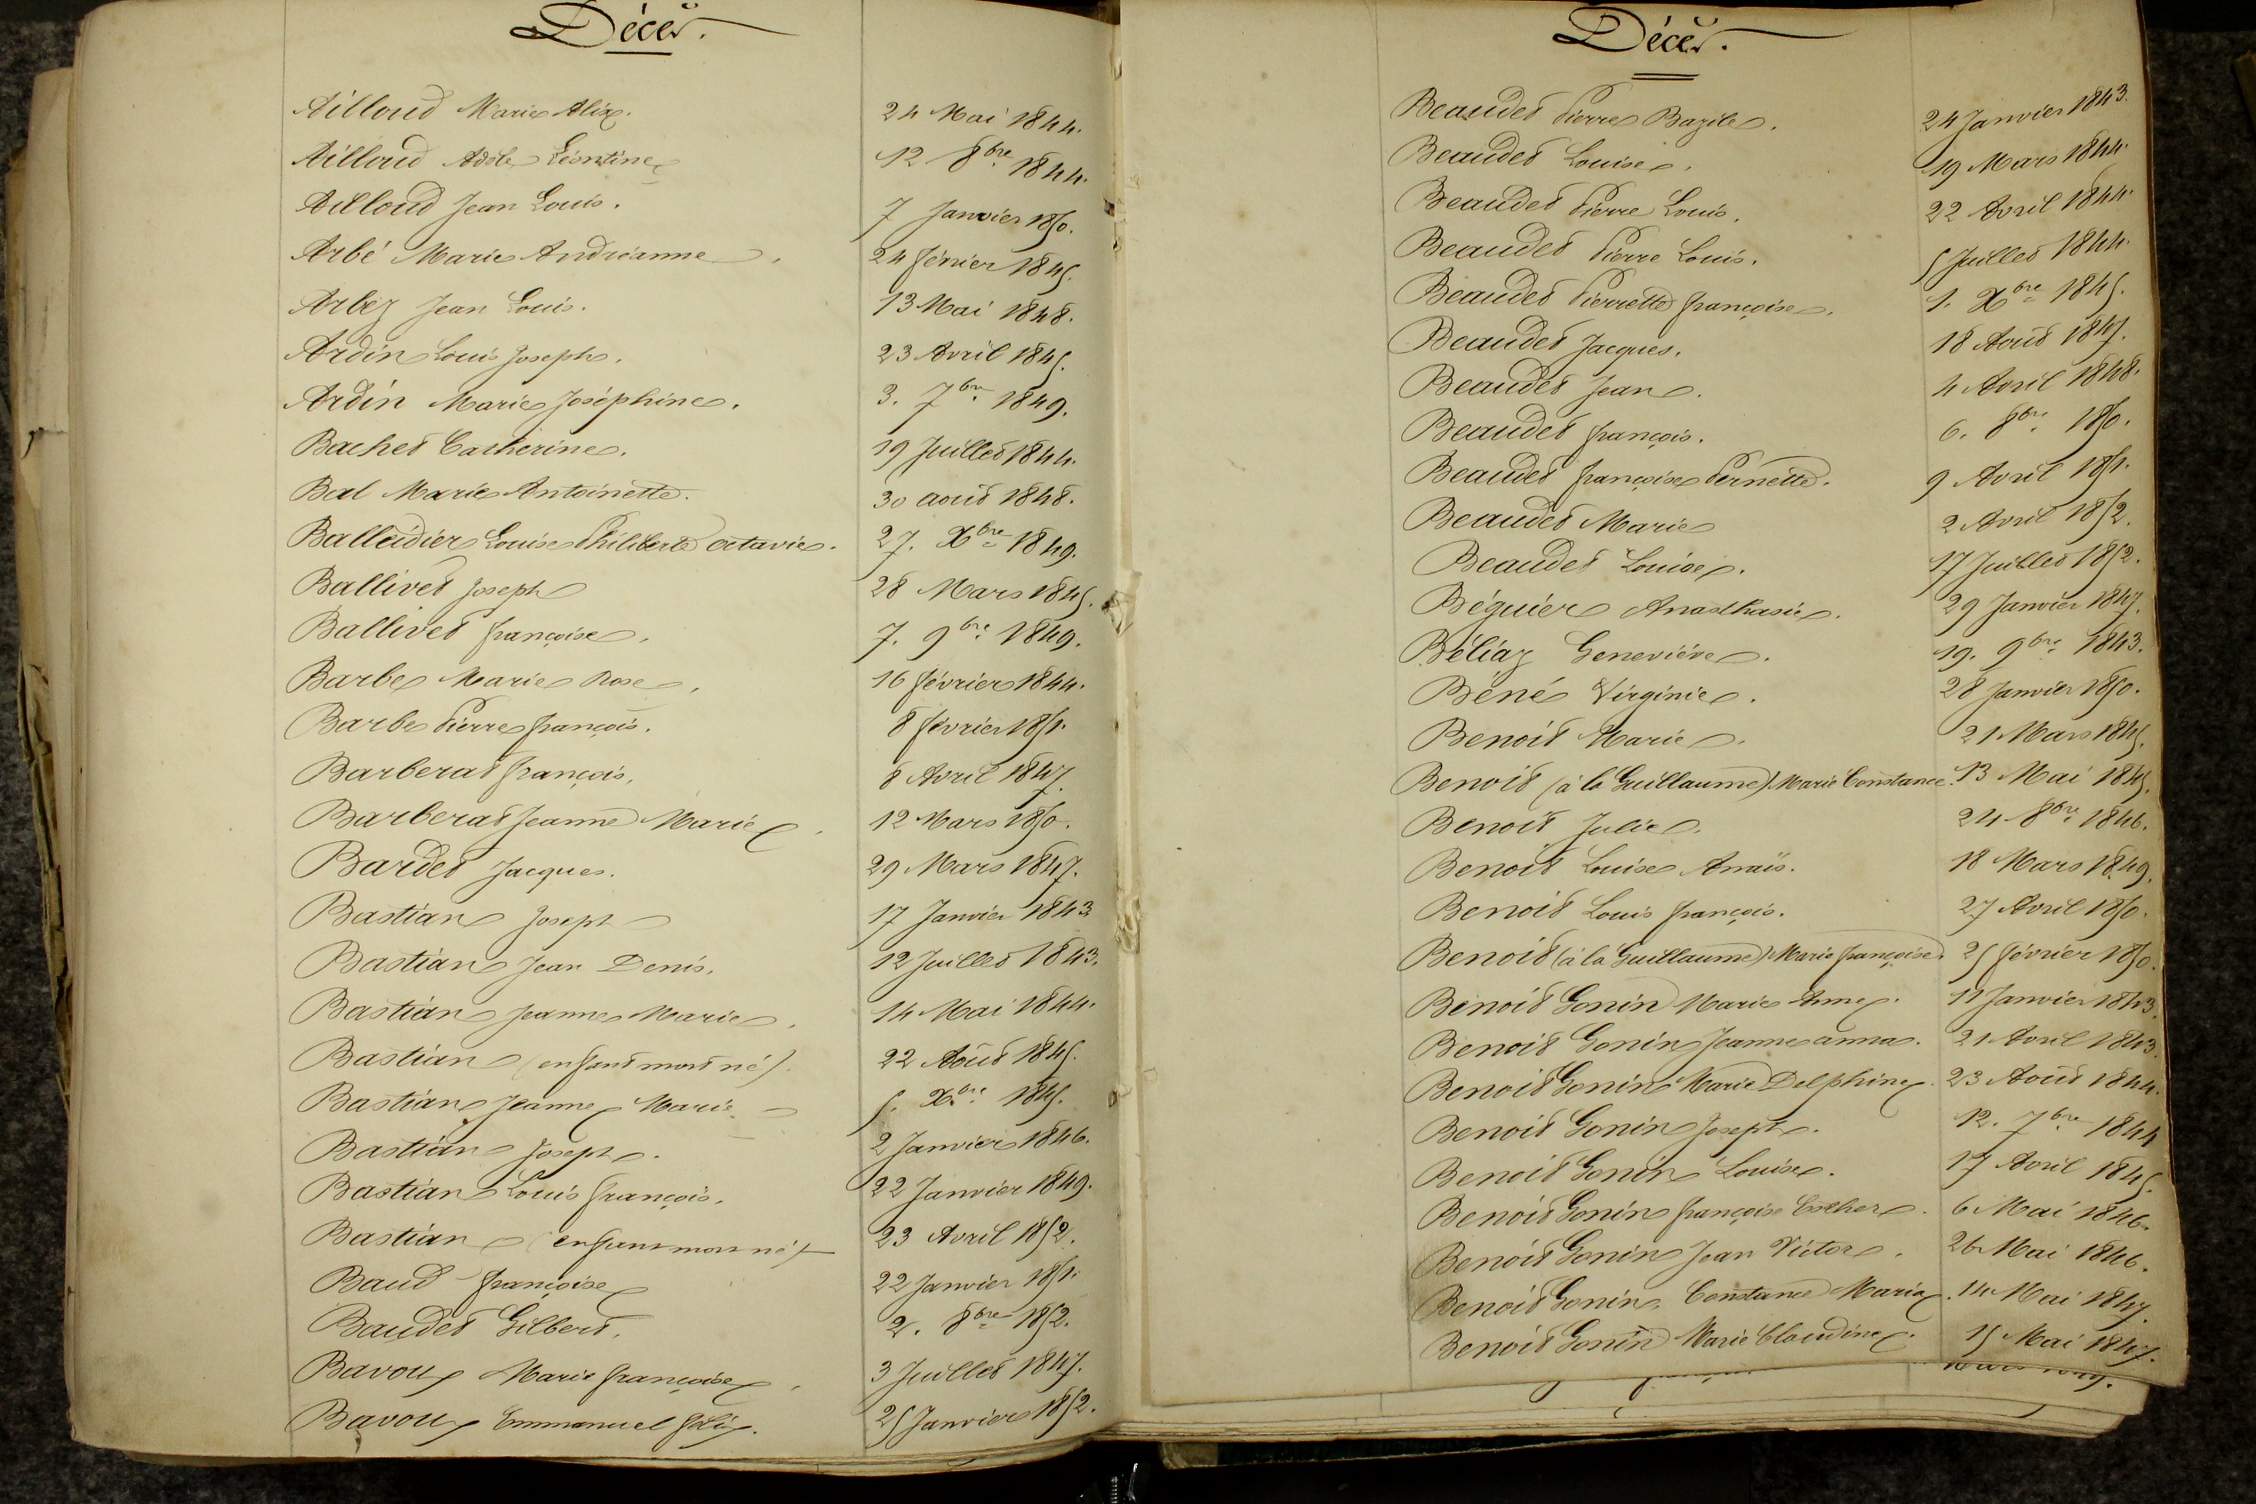 Décès.
Ailloud Marie Alix. 24 Mai 1844.
Ailloud Adèle Léontine 12 8bre 1844.
Ailloud Jean Louis. 7 Janvier 1850.
Arbé Marie Andréanne. 24 février 1845.
Arbez Jean Louis. 13 Mai 1848.
Ardin Louis Joseph. 23 Avril 1845.
Ardin Marie Joséphine. 3. 7bre 1849.
Bachet Catherine. 19 Juillet 1844.
Bal Marie Antoinette. 30 août 1848.
Balleidier Louise Philiberte octavie. 27. Xbre 1849.
Ballivet Joseph 28 Mars 1845.
Ballivet françoise. 7. 9bre 1849.
Barbe Marie Rose. 16 février 1844.
Barbe Pierre françois. 8 février 1851.
Barberat françois. 8 Avril 1847.
Barberat Jeanne Marie. 12 Mars 1850.
Bardet Jacques. 29 Mars 1847.
Bastian Joseph 17 Janvier 1843.
Bastian Jean Denis. 12 Juillet 1843.
Bastian Jeanne Marie. 14 Mai 1844.
Bastian (enfant mort né). 22 Août 1845.
Bastian Jeanne Marie 5. Xbre 1845.
Bastian Joseph. 2 Janvier 1846.
Bastian Louis françois. 22 Janvier 1849.
Bastian (enfant mort né) 23 Avril 1852.
Baud françoise 22 Janvier 1851.
Baudet Gilbert. 2. 8bre 1852.
Bavoux Marie françoise. 3 Juillet 1847.
Bavoux Emmanuel félix. 25 Janvier 1852.
Décès.
Beaudet Pierre Bazile. 24 Janvier 1843.
Beaudet Louise. 19 Mars 1844.
Beaudet Pierre Louis. 22 Avril 1844.
Beaudet Pierre Louis. 5 Juillet 1844.
Beaudet Pierrette françoise. 1. Xbre 1845.
Beaudet Jacques. 18 Août 1847.
Beaudet Jean. 4 Avril 1848.
Beaudet françois. 6. 8bre 1850.
Beaudet françoise Pernette. 9 Avril 1851.
Beaudet Marie 2 Avril 1852.
Beaudet Louise. 17 Juillet 1852.
Béguier Anasthasie. 29 Janvier 1847.
Béliaz Geneviève. 19. 9bre 1843.
Béné Virginie. 28 Janvier 1850.
Benoit Marie. 21 Mars 1845.
Benoit (à la Guillaume) Marie Constance. 13 Mai 1845.
Benoit Julie. 24 8bre 1846.
Benoit Louise Anaïs. 18 Mars 1849.
Benoit Louis françois. 27 Avril 1850.
Benoit (à la Guillaume) Marie françoise. 25 février 1850.
Benoit Gonin Marie Anne. 11 Janvier 1843.
Benoit Gonin Jeanne anna. 21 Avril 1843.
Benoit Gonin Marie Delphine. 23 Août 1844.
Benoit Gonin Joseph. 12. 7bre 1844
Benoit Gonin Louise. 17 Avril 1845.
Benoit Gonin françoise Esther. 6 Mai 1846.
Benoit Gonin Jean Victor. 26 Mai 1846.
Benoit Gonin Constance Maria. 14 Mai 1847.
Benoit Gonin Marie Claudine. 15 Mai 1847.